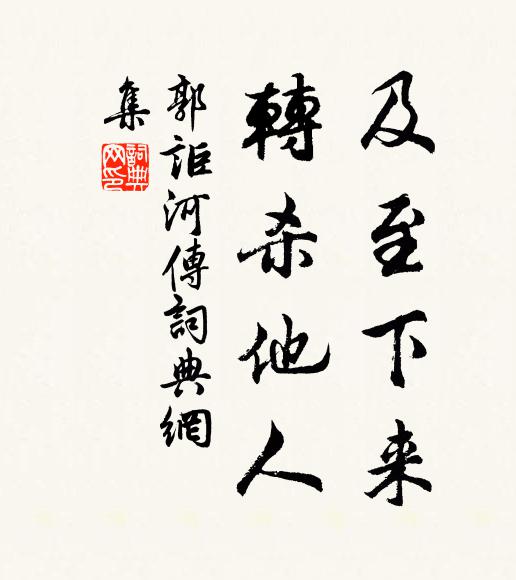 及至下来
轉杀他人
郭詎河傳詞典網
集
詞典網印